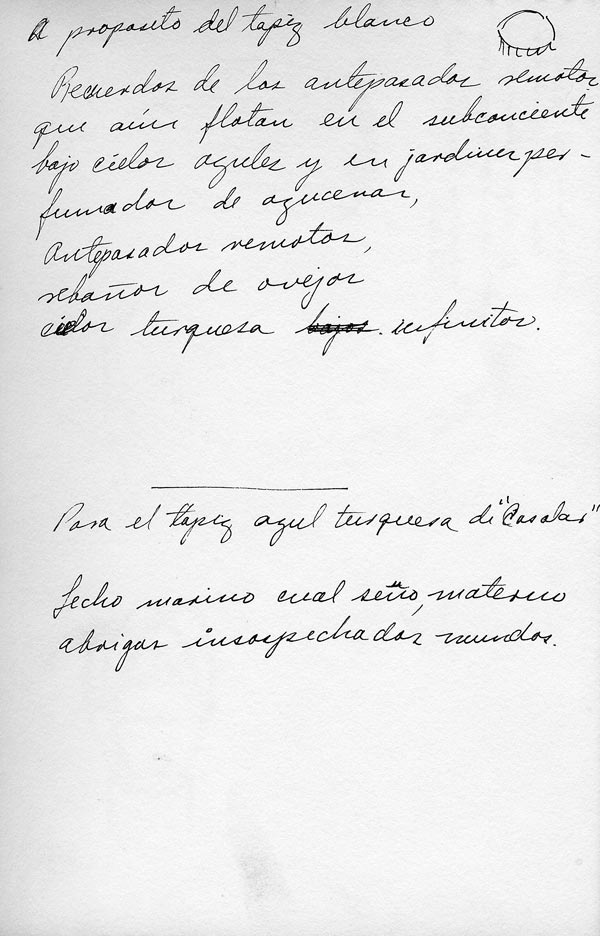 A proposito del tapiz blanco
Recuerdos de los antepasados remotos
que aún flotan en el subconciente
bajo cielos azules y en jardines per-
fumados de azucenas,
Antepasados remotos,
rebaños de ovejas
cielos turquesa bajos infinitos.
Para el tapiz azul turquesa di "Casalas"
Lecho marino cual seno, materno
abrigas insospechados mundos.